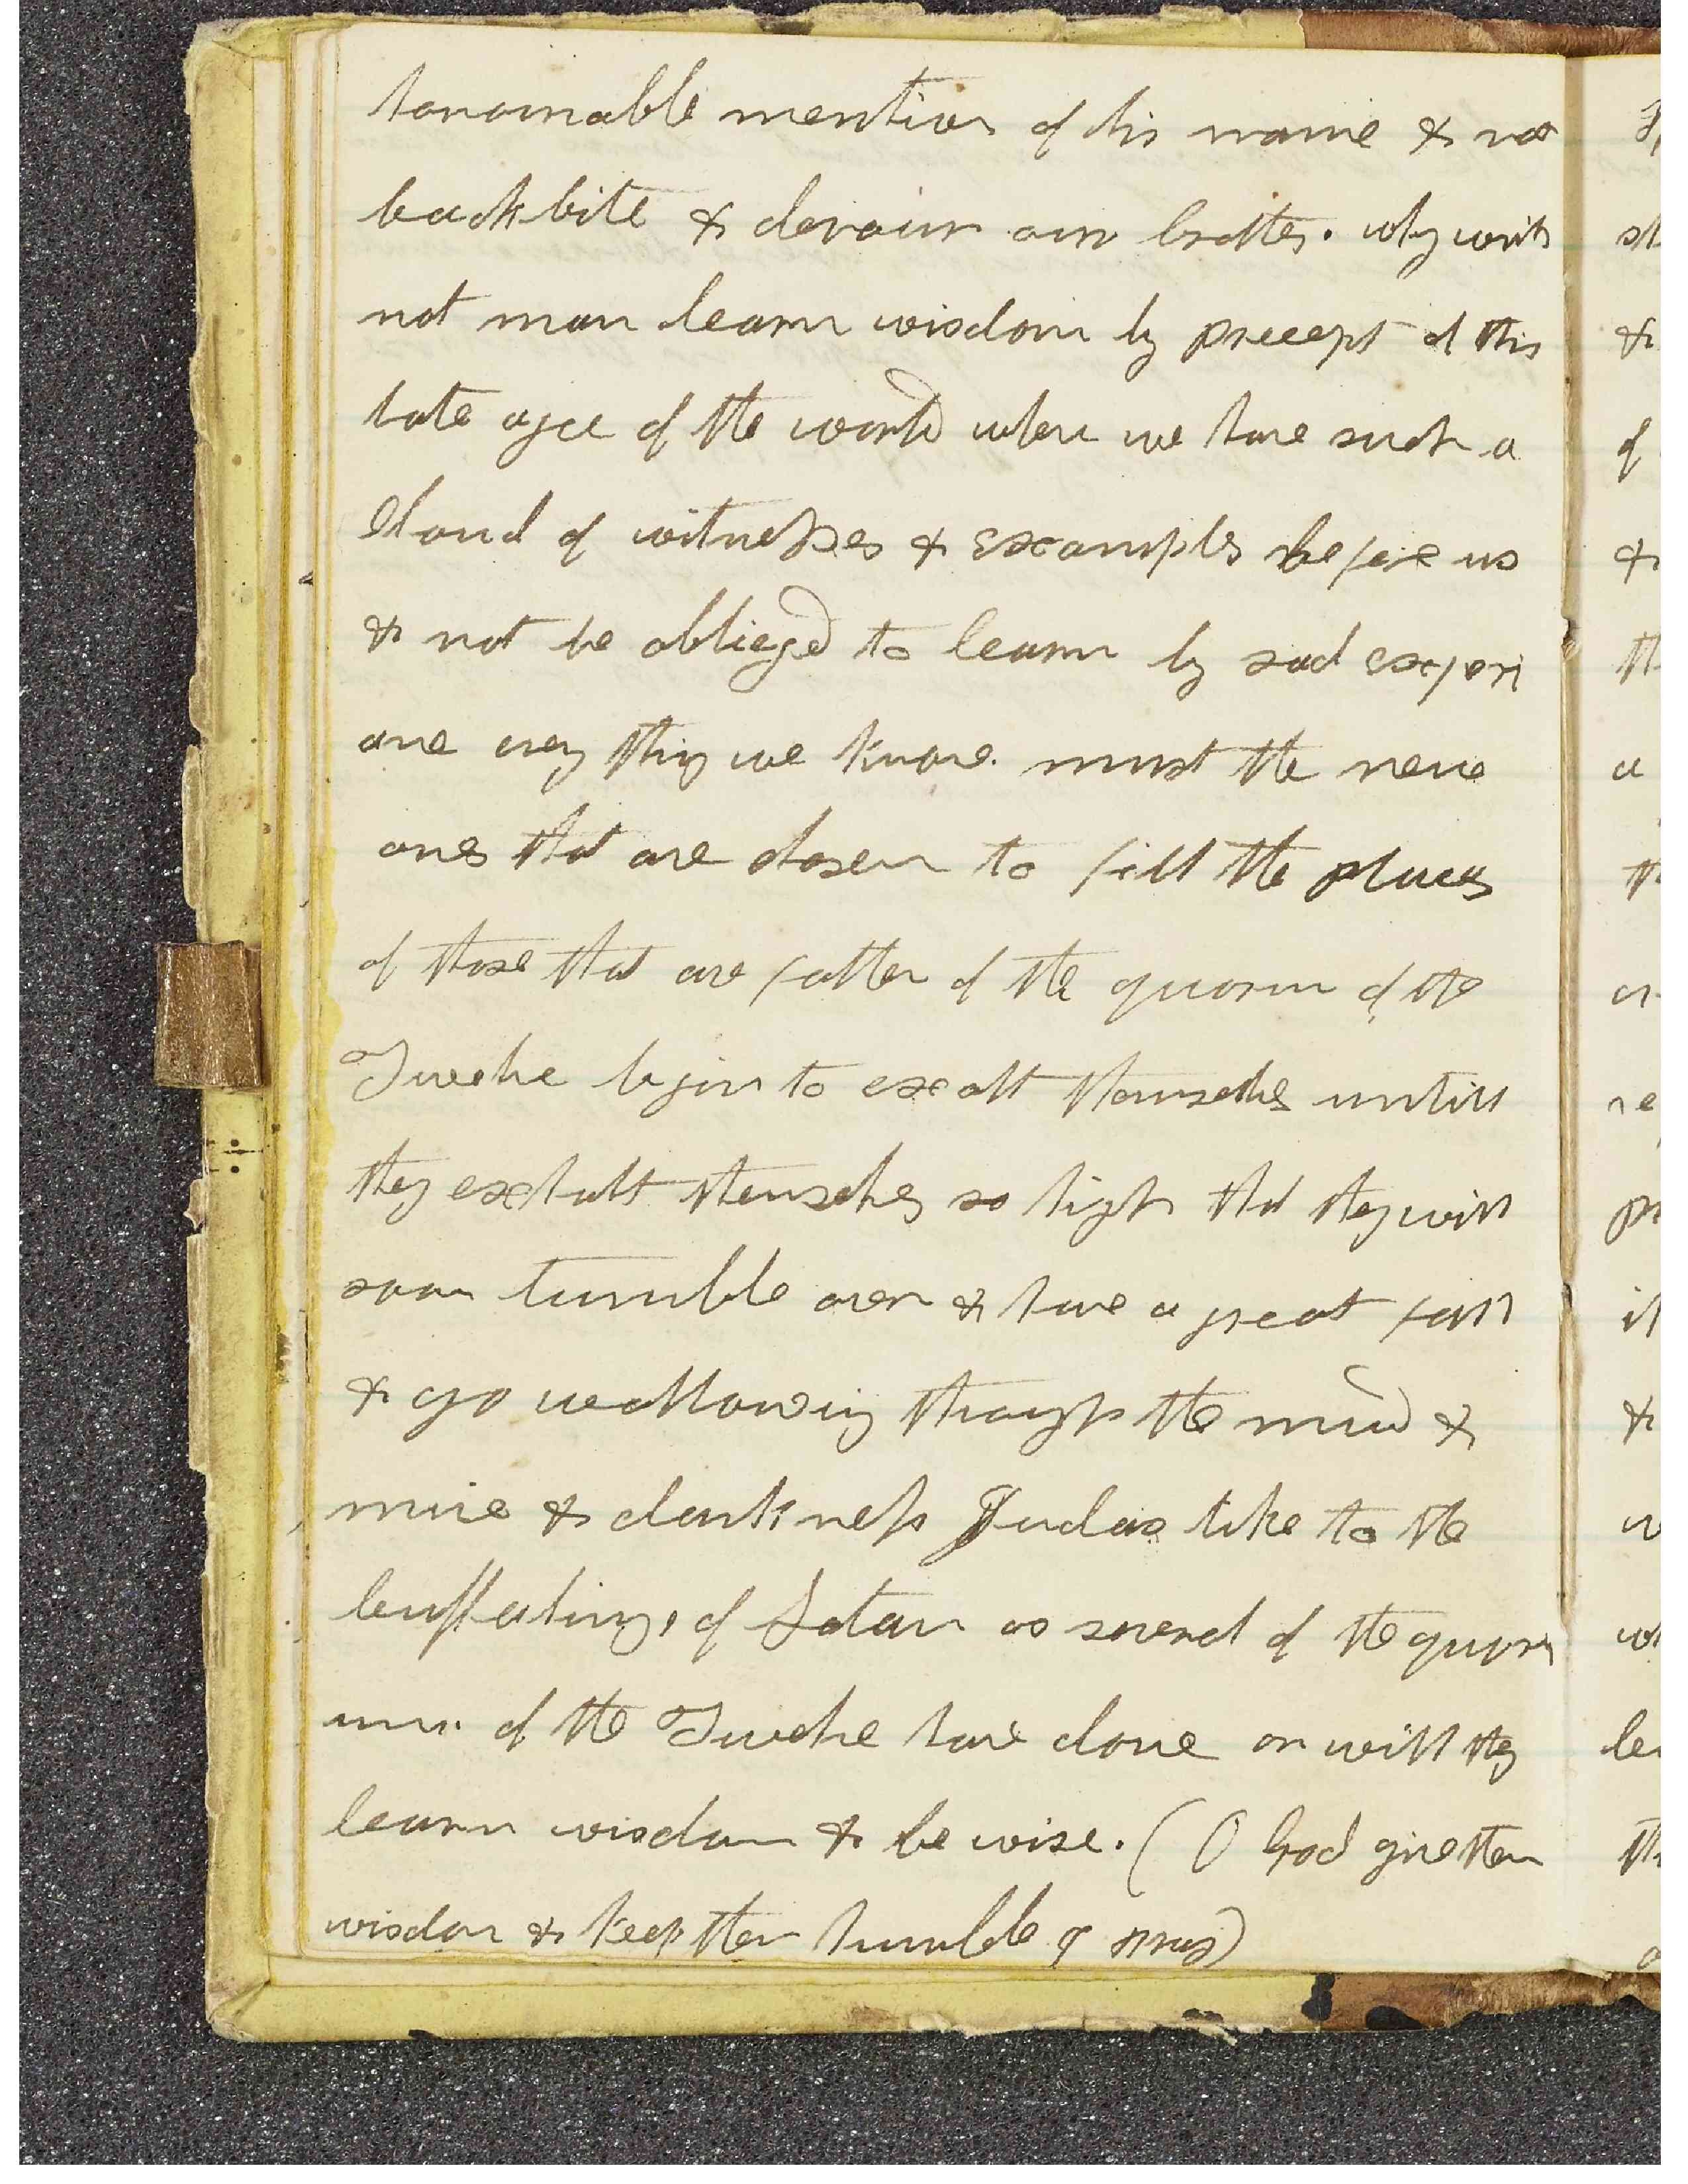 honorable mention of his name & not
backbite & devour our brother. why will
not man learn wisdom by precept at this
late agee of the world when we have such a
Cloud of witnesses & examples before us
& not be obliegd to learn by sad experi
ance evry thing we know. must the new
ones that are chosen to fill the places
of those that are fallen of the quorum of the
Twelve begin to exalt themselves untill
they exhalt themselves so high that they will
soon tumble over & have a great fall
& go wallowing through the mud &
mire & darkness Judas like to the
buffatings of Satan as several of the quor
um of the Twelve have done or will they
learn wisdom & be wise. (O God give them
wisdom & keep them humble